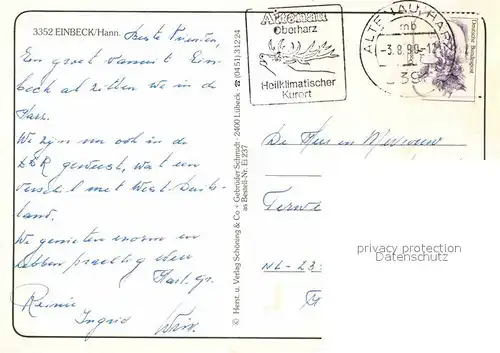 3352 EINBECK/Hann.
Beste Vrienden,
Een groet vanuit Ein-
beck al zitten we in de
Harz.
We zijn nu ook in de
DDR geweest, wat een
verschil met West Duits-
land.
We genieten enorm en
hebben prachtig weer
Hart. gr.
Reinie
Ingrid Wim.
© Herst. u. Verlag Schöning & Co + Gebrüder Schmidt · 2400 Lübeck · ☎ (0451) 31224
as Bestell-Nr. Ei 237
Altenau
Oberharz
Heilklimatischer
Kurort
ALTENAU, HARZ
mb
-3.8.90-12
339
Deutsche Bundespost
De Heer en Mevrouw
NL-23
privacy protection
Datenschutz